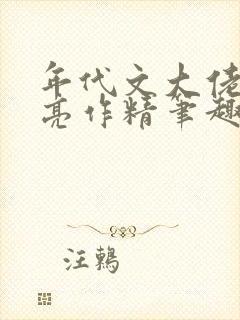 年代文大佬
亮作精笔趣
汪鶈